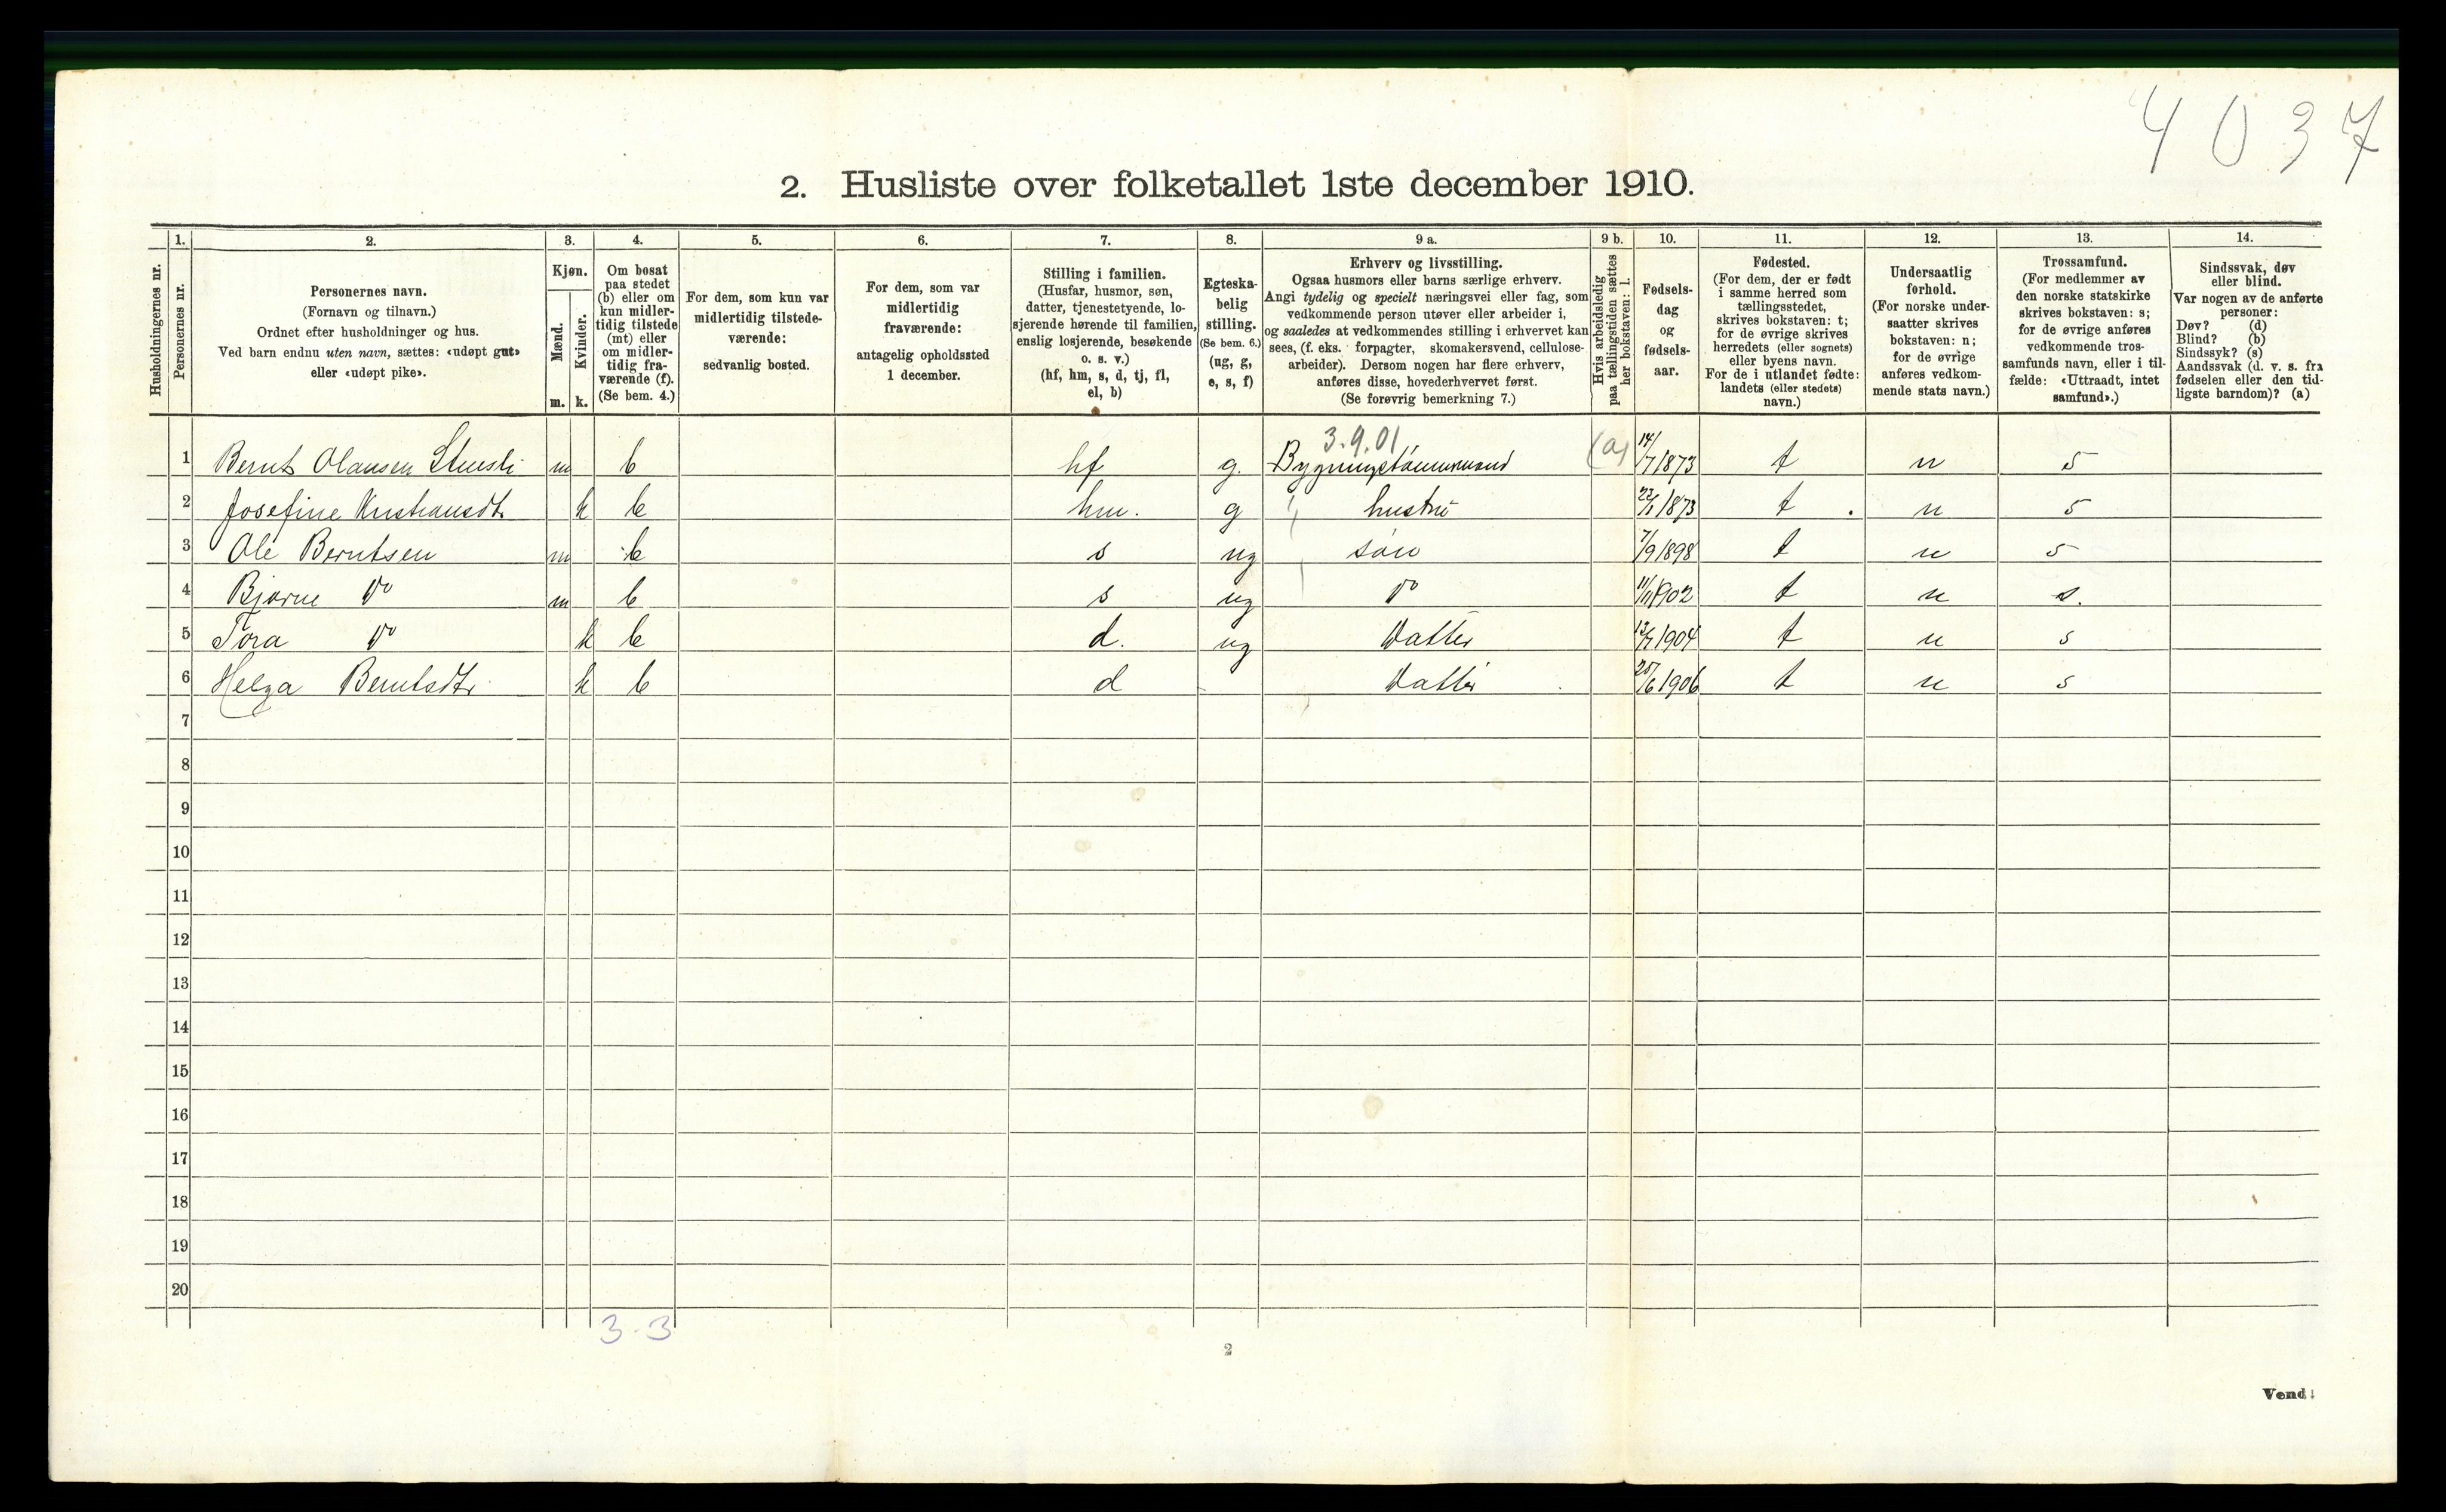 4037
2. Husliste over folketallet 1ste december 1910.
1. 2. 3. 4. 5. 6. 7. 8. 9 a. 9 b. 10. 11. 12. 13. 14.
Husholdningernes nr.
Personernes nr.
Personernes navn.
(Fornavn og tilnavn.)
Ordnet efter husholdninger og hus.
Ved barn endnu uten navn, sættes: «udøpt gut»
eller «udøpt pike».
Kjøn.
Mænd.
Kvinder.
m. k.
Om bosat
paa stedet
(b) eller om
kun midler-
tidig tilstede
(mt) eller
om midler-
tidig fra-
værende (f).
(Se bem. 4.)
For dem, som kun var
midlertidig tilstede-
værende:
sedvanlig bosted.
For dem, som var
midlertidig
fraværende:
antagelig opholdssted
1 december.
Stilling i familien.
(Husfar, husmor, søn,
datter, tjenestetyende, lo-
sjerende hørende til familien,
enslig losjerende, besøkende
o. s. v.)
(hf, hm, s, d, tj, fl,
el, b)
Egteska-
belig
stilling.
(Se bem. 6.)
(ug, g,
e, s, f)
Erhverv og livsstilling.
Ogsaa husmors eller barns særlige erhverv.
Angi tydelig og specielt næringsvei eller fag, som
vedkommende person utøver eller arbeider i,
og saaledes at vedkommendes stilling i erhvervet kan
sees, (f. eks. forpagter, skomakersvend, cellulose-
arbeider). Dersom nogen har flere erhverv,
anføres disse, hovederhvervet først.
(Se forøvrig bemerkning 7.)
Hvis arbeidsledig
paa tællingstiden sættes
her bokstaven: l.
Fødsels-
dag
og
fødsels-
aar.
Fødested.
(For dem, der er født
i samme herred som
tællingsstedet,
skrives bokstaven: t;
for de øvrige skrives
herredets (eller sognets)
eller byens navn.
For de i utlandet fødte:
landets (eller stedets)
navn.)
Undersaatlig
forhold.
(For norske under-
saatter skrives
bokstaven: n;
for de øvrige
anføres vedkom-
mende stats navn.)
Trossamfund.
(For medlemmer av
den norske statskirke
skrives bokstaven: s;
for de øvrige anføres
vedkommende tros-
samfunds navn, eller i til-
fælde: «Uttraadt, intet
samfund».)
Sindssvak, døv
eller blind.
Var nogen av de anførte
personer:
Døv? (d)
Blind? (b)
Sindssyk? (s)
Aandssvak (d. v. s. fra
fødselen eller den tid-
ligste barndom)? (a)
3.9.01 (a)
1 Bernt Olausen Stensli m b hf g. Bygningstømmermand 14/7 1873 t n s
2 Josefine Kristiansdtr k b hm. g hustru 1873 t. n s
3 Ole Berntsen m b s ug søn 7/9 1898 t n s
4 Bjarne Do m b s ug Do 11/11 1902 t n s.
5 Tora Do k b d. ug Datter 1904 t n s
6 Helga Berntsdtr k b d - Datter 25/6 1906 t n s
7
8
9
10
11
12
13
14
15
16
17
18
19
20
3.3
2
Vend!